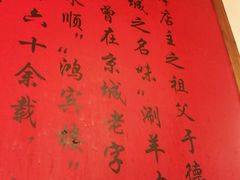 店主之祖父于德
城之名味“涮羊
曾在京城老字
永顺”“鸿宾楼”
六十余载，